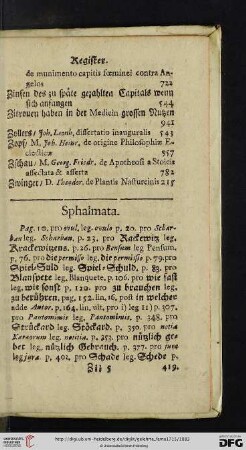 Register.
de munimento capitis fœminei contra An-
gelos 722
Zinsen des zu späte gezahlten Capitals wenn
sich anfangen 544
Zitronen haben in der Medicin grossen Nutzen
941
Zollers / Joh. Leonh. dissertatio inauguralis 543
Zopf / M. Joh. Henr. de origine Philosophiæ E-
clecticæ 557
Zschau / M. Georg. Friedr. de Apotheosi a Stoicis
affectata & asserta 782
Zwinger / D. Theodor. de Plantis Nasturcinis 215
Sphalmata.
Pag. 10. pro leg. p. 20. pro Schar-
ban leg. Scharban. p. 23. pro Rackewitz leg.
Krackewitzens. p. 26. pro Bensum leg. Pensum.
p. 76. pro die permisso leg. die permissio p. 79. pro
Spiel-Suld leg. Spiel-Schuld. p. 83. pro
Blanspete leg. Blanquete. p. 106. pro wie fast
leg. wie sonst p. 120. pro zu brauchen leg.
zu berühren. pag. 152. lin. 16. post in welcher
adde Autor. p. 164. lin. ult. pro 1) leg 11) p. 307.
pro Pantomimis leg. Pantomimus. p. 348. pro
Strückard leg. Stöckard. p. 350. pro notia
leg. notitia. p. 253. pro nützlich ge-
bet leg. nützlich Gebrauch. p. 377. pro sura
leg. jura. p. 402. pro Schade leg. Schede p.
Zii 5 419.
http://digi.ub.uni-heidelberg.de/diglit/gelehrte_fama1715/1002
© Universitätsbibliothek Heidelberg